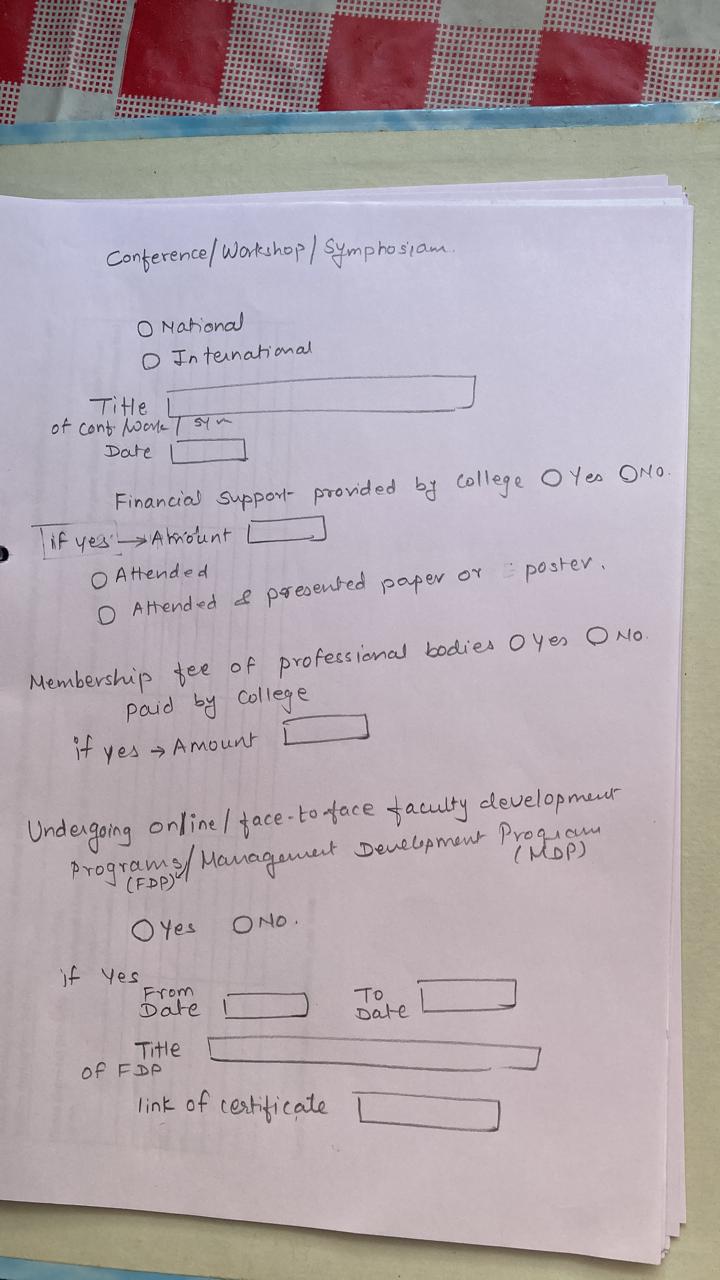 Conference/Workshop/Symphosiam.
National
International
Title
of Conf/Work/Sym
Date
Financial support provided by College Yes No.
if yes → Amount
Attended
Attended & presented paper or poster.
Membership fee of professional bodies Yes No.
paid by College
if yes → Amount
Undergoing online/face-to-face faculty development
Programs/Management Development Program
(FDP) (MDP)
Yes No.
if Yes
From To
Date Date
Title
of FDP
link of certificate